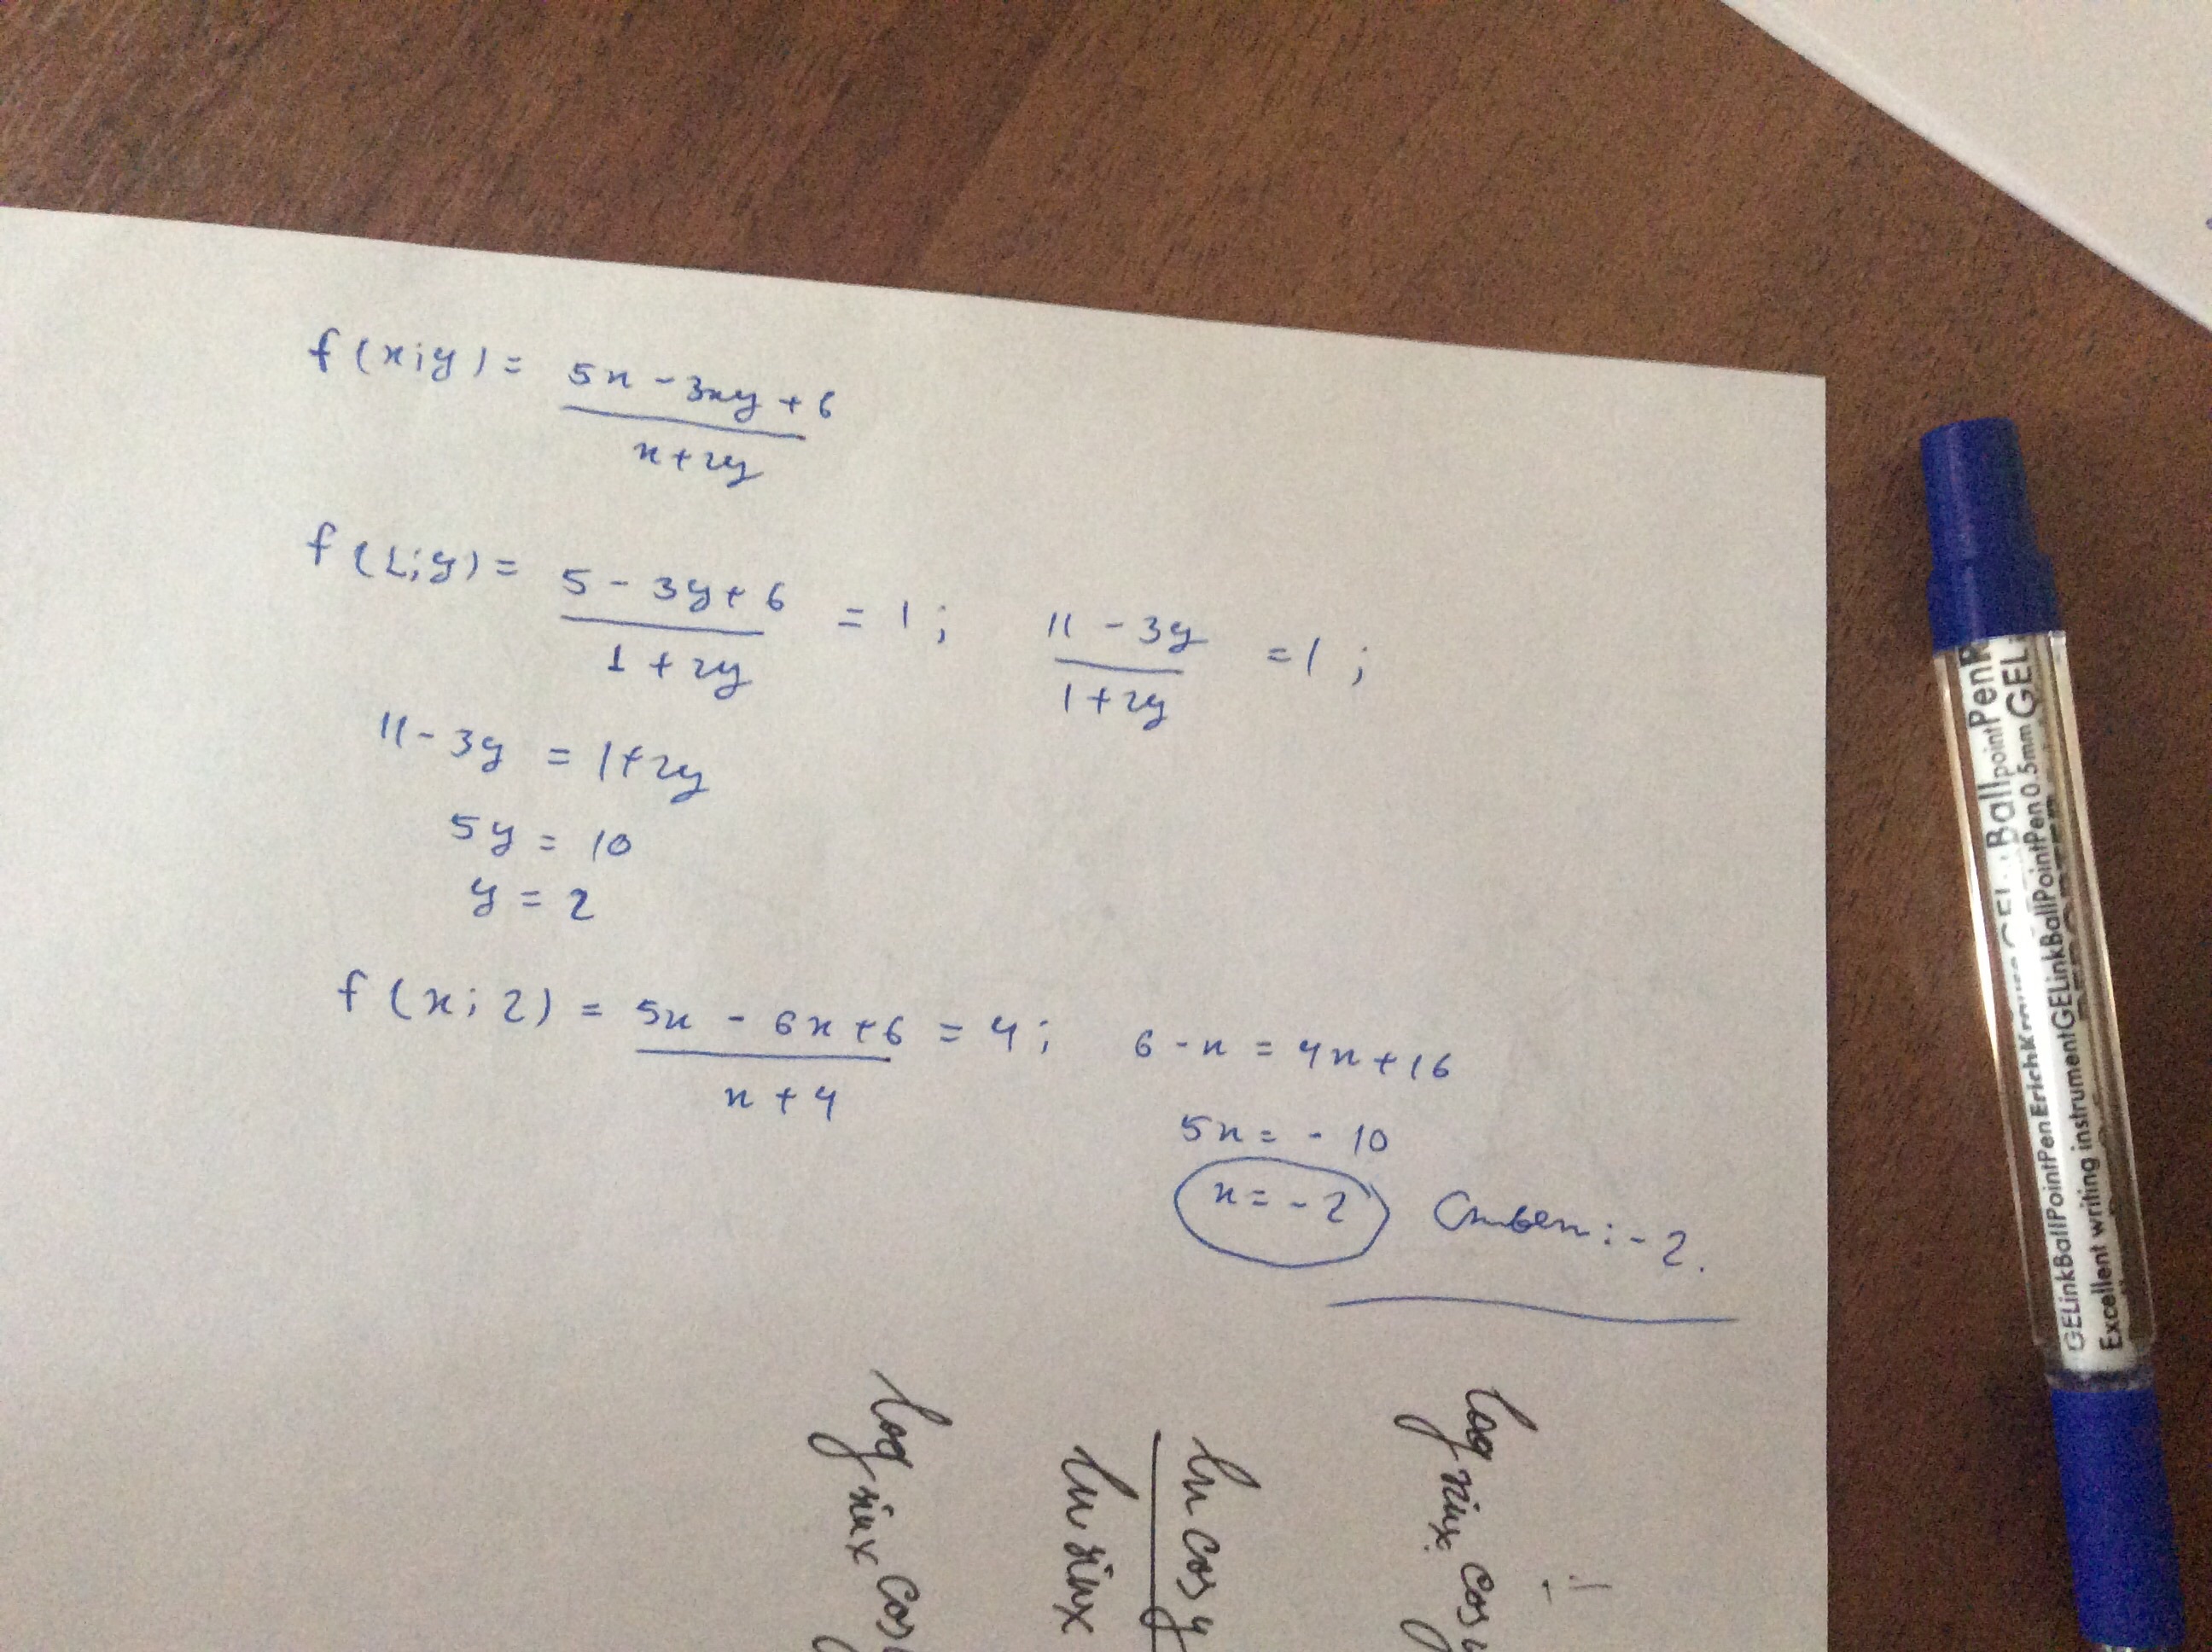 f(x;y) = (5x - 3xy + 6)/(x + 2y)
f(1;y) = (5 - 3y + 6)/(1 + 2y) = 1; (11 - 3y)/(1 + 2y) = 1;
11 - 3y = 1 + 2y
5y = 10
y = 2
f(x; 2) = (5x - 6x + 6)/(x + 4) = 4; 6 - x = 4x + 16
5x = - 10
x = - 2 Ответ: - 2.
log sinx cos
ln cos y / ln sinx
log sinx cos
GELinkBallPointPenErichKrause GEL BallpointPen
Excellent writing instrumentGELinkBallPointPen0.5mmGEL